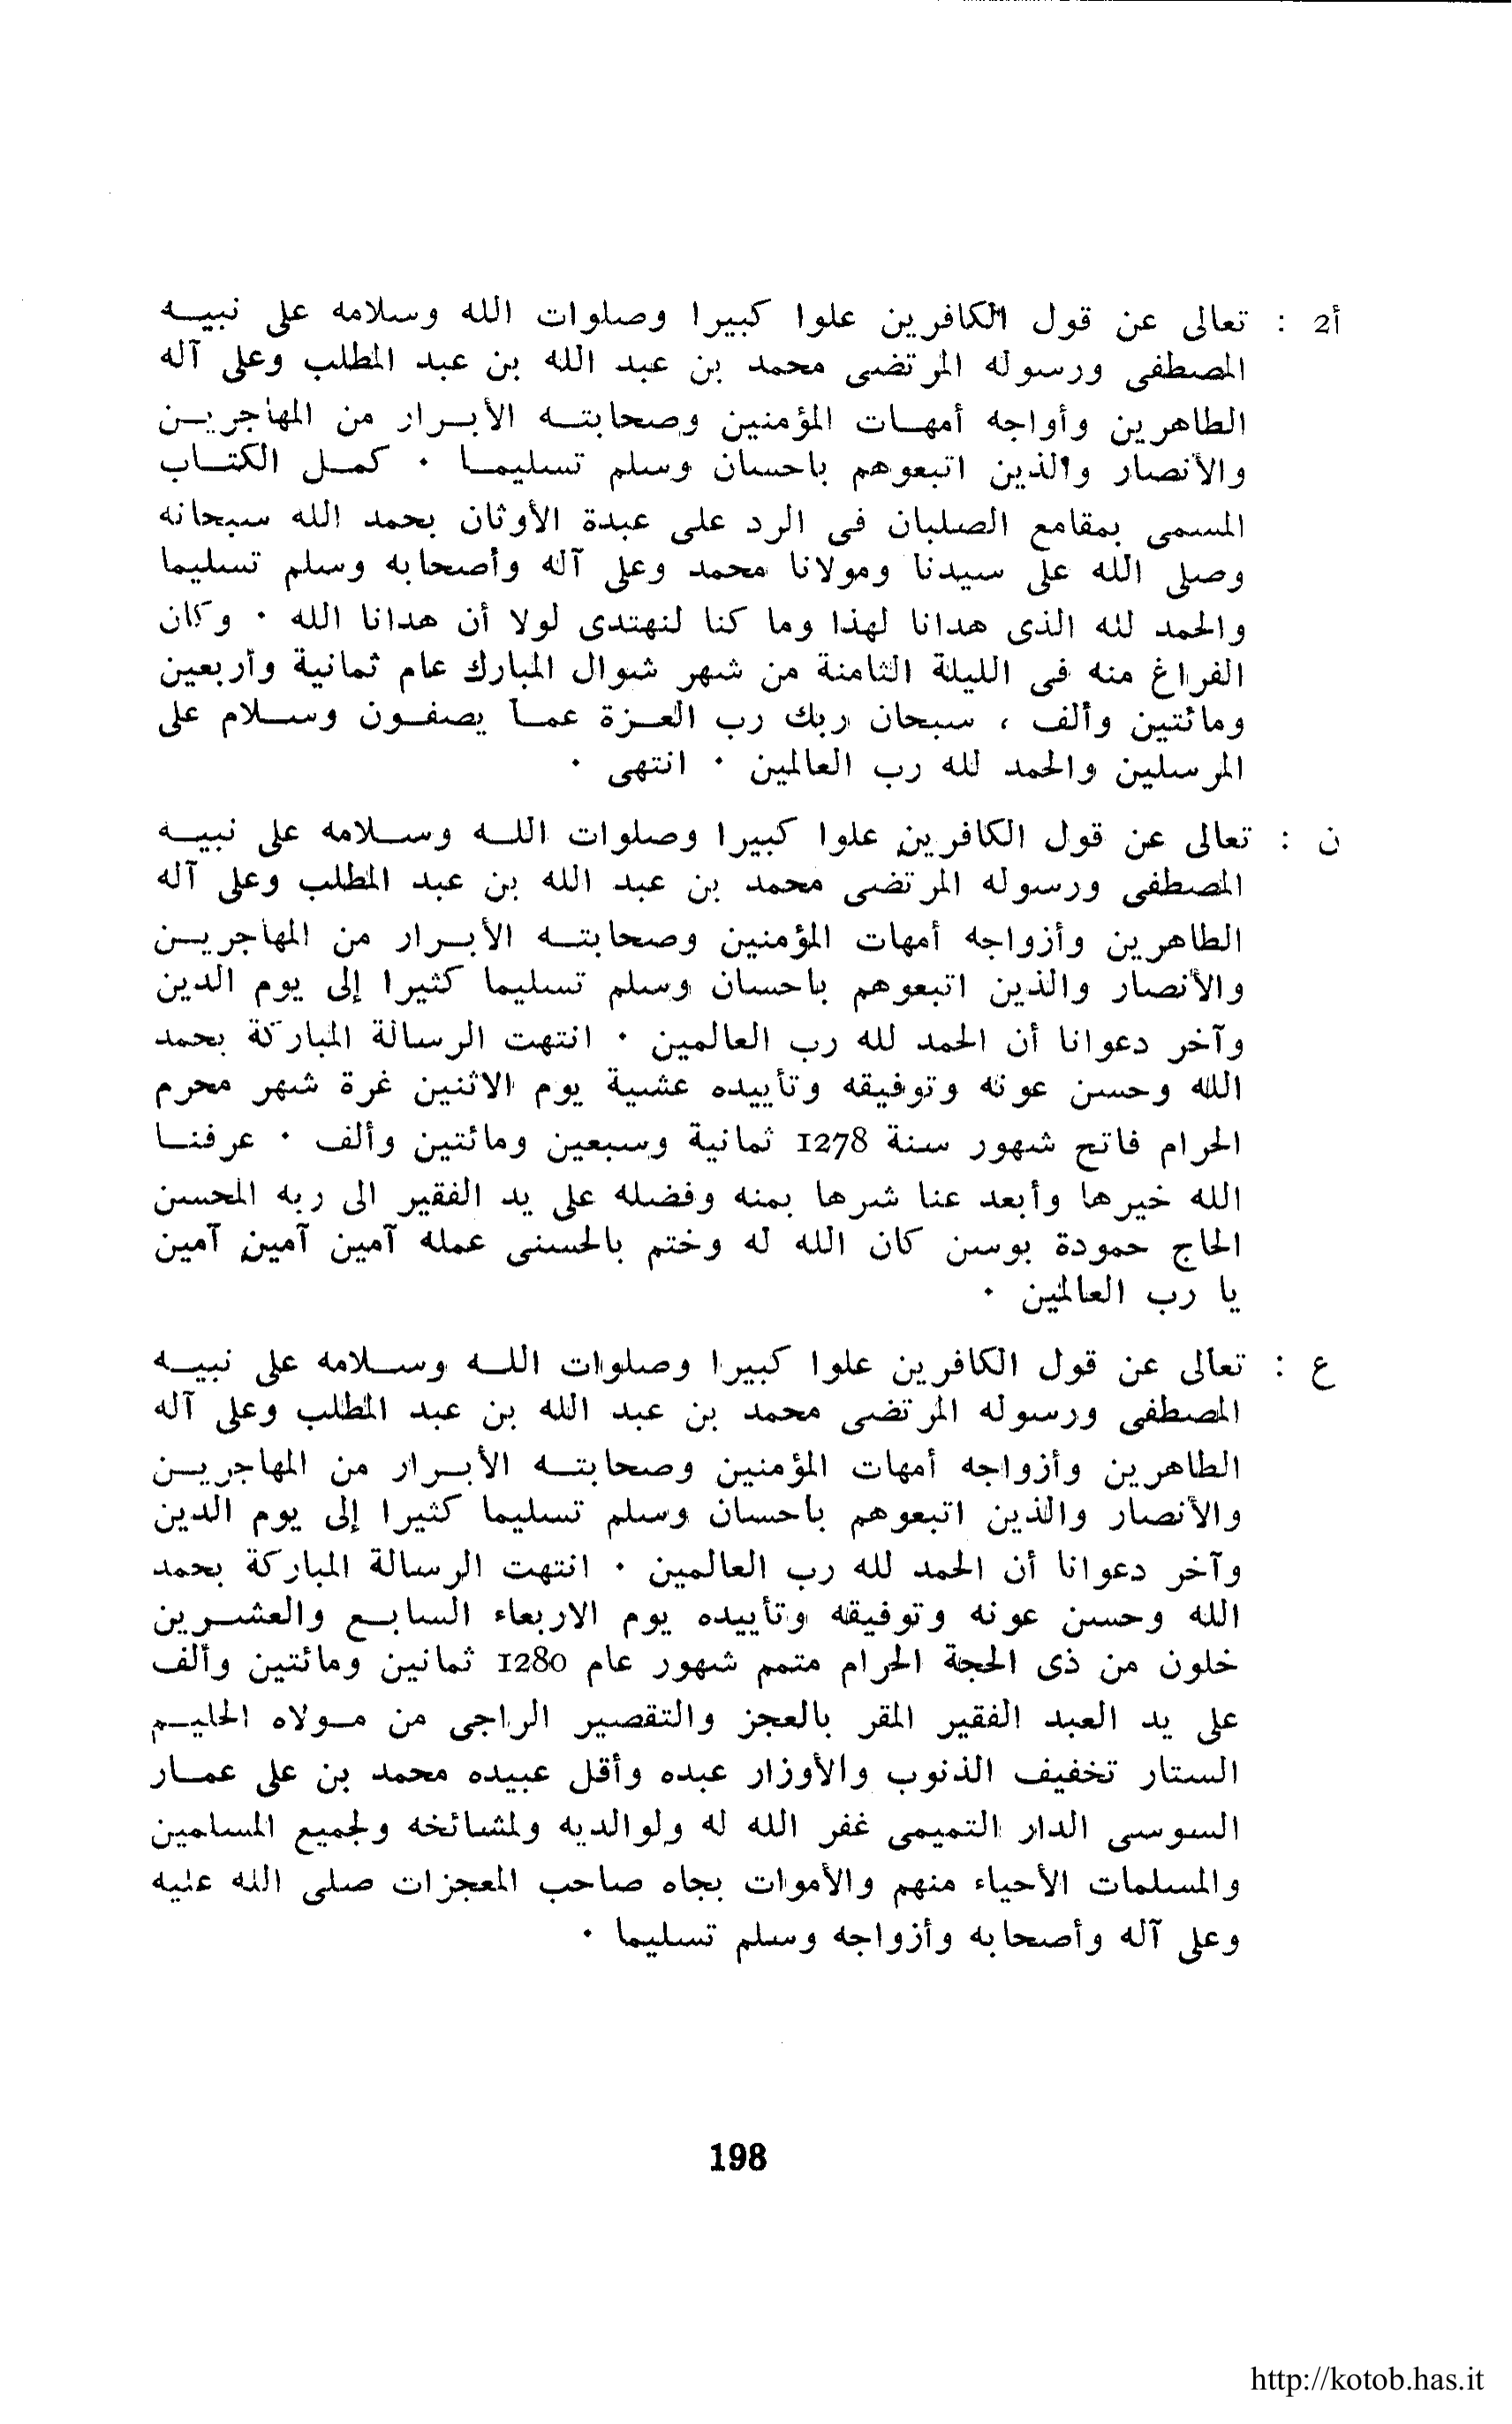 أ2 : تعالى عن قول الكافرين علوا كبيرا وصلوات الله وسلامه على نبيه
المصطفى ورسوله المرتضى محمد بن عبد الله بن عبد المطلب وعلى آله
الطاهرين وأواجه أمهات المؤمنين وصحابته الأبرار من المهاجرين
والأنصار والذين اتبعوهم باحسان وسلم تسليما ٠ كمل الكتاب
المسمى بمقامع الصلبان فى الرد على عبدة الأوثان بحمد الله سبحانه
وصلى الله على سيدنا ومولانا محمد وعلى آله وأصحابه وسلم تسليما
والحمد لله الذى هدانا لهذا وما كنا لنهتدى لولا أن هدانا الله ٠ وكان
الفراغ منه فى الليلة الثامنة من شهر شوال المبارك عام ثمانية وأربعين
ومائتين وألف ، سبحان ربك رب العزة عما يصفون وسلام على
المرسلين والحمد لله رب العالمين ٠ انتهى ٠
ن : تعالى عن قول الكافرين علوا كبيرا وصلوات الله وسلامه على نبيه
المصطفى ورسوله المرتضى محمد بن عبد الله بن عبد المطلب وعلى آله
الطاهرين وأزواجه أمهات المؤمنين وصحابته الأبرار من المهاجرين
والأنصار والذين اتبعوهم باحسان وسلم تسليما كثيرا إلى يوم الدين
وآخر دعوانا أن الحمد لله رب العالمين ٠ انتهت الرسالة المباركة بحمد
الله وحسن عونه وتوفيقه وتأييده عشية يوم الاثنين غرة شهر محرم
الحرام فاتح شهور سنة 1278 ثمانية وسبعين ومائتين وألف ٠ عرفنا
الله خيرها وأبعد عنا شرها بمنه وفضله على يد الفقير الى ربه المحسن
الحاج حمودة بوسن كان الله له وختم بالحسنى عمله آمين آمين آمين
يا رب العالمين ٠
ع : تعالى عن قول الكافرين علوا كبيرا وصلوات الله وسلامه على نبيه
المصطفى ورسوله المرتضى محمد بن عبد الله بن عبد المطلب وعلى آله
الطاهرين وأزواجه أمهات المؤمنين وصحابته الأبرار من المهاجرين
والأنصار والذين اتبعوهم باحسان وسلم تسليما كثيرا إلى يوم الدين
وآخر دعوانا أن الحمد لله رب العالمين ٠ انتهت الرسالة المباركة بحمد
الله وحسن عونه وتوفيقه وتأييده يوم الاربعاء السابع والعشرين
خلون من ذى الحجة الحرام متمم شهور عام 1280 ثمانين ومائتين وألف
على يد العبد الفقير المقر بالعجز والتقصير الراجى من مولاه الحليم
الستار تخفيف الذنوب والأوزار عبده وأقل عبيده محمد بن على عمار
السوسى الدار التميمى غفر الله له ولوالديه ولمشائخه ولجميع المسلمين
والمسلمات الأحياء منهم والأموات بجاه صاحب المعجزات صلى الله عليه
وعلى آله وأصحابه وأزواجه وسلم تسليما ٠
198
http://kotob.has.it